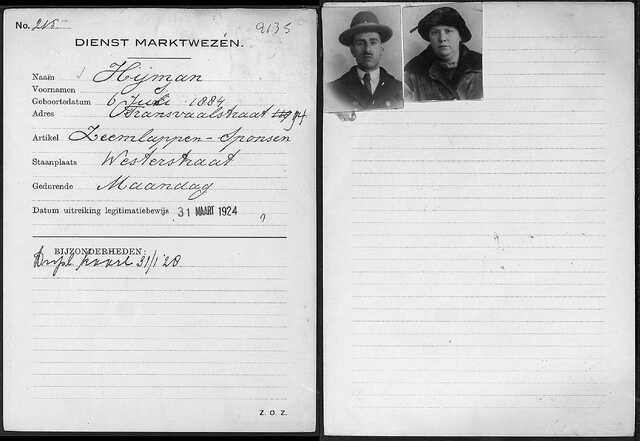 No. 215
2135
DIENST MARKTWEZEN.
Naam Hijman
Voornamen
Geboortedatum 6 Juli 1884
Adres Transvaalstraat 94
Artikel Zeemlappen - Sponsen
Staanplaats Westerstraat
Gedurende Maandag
Datum uitreiking legitimatiebewijs 31 MAART 1924
BIJZONDERHEDEN:
Dupl. kaart 31/1 28
Z. O. Z.